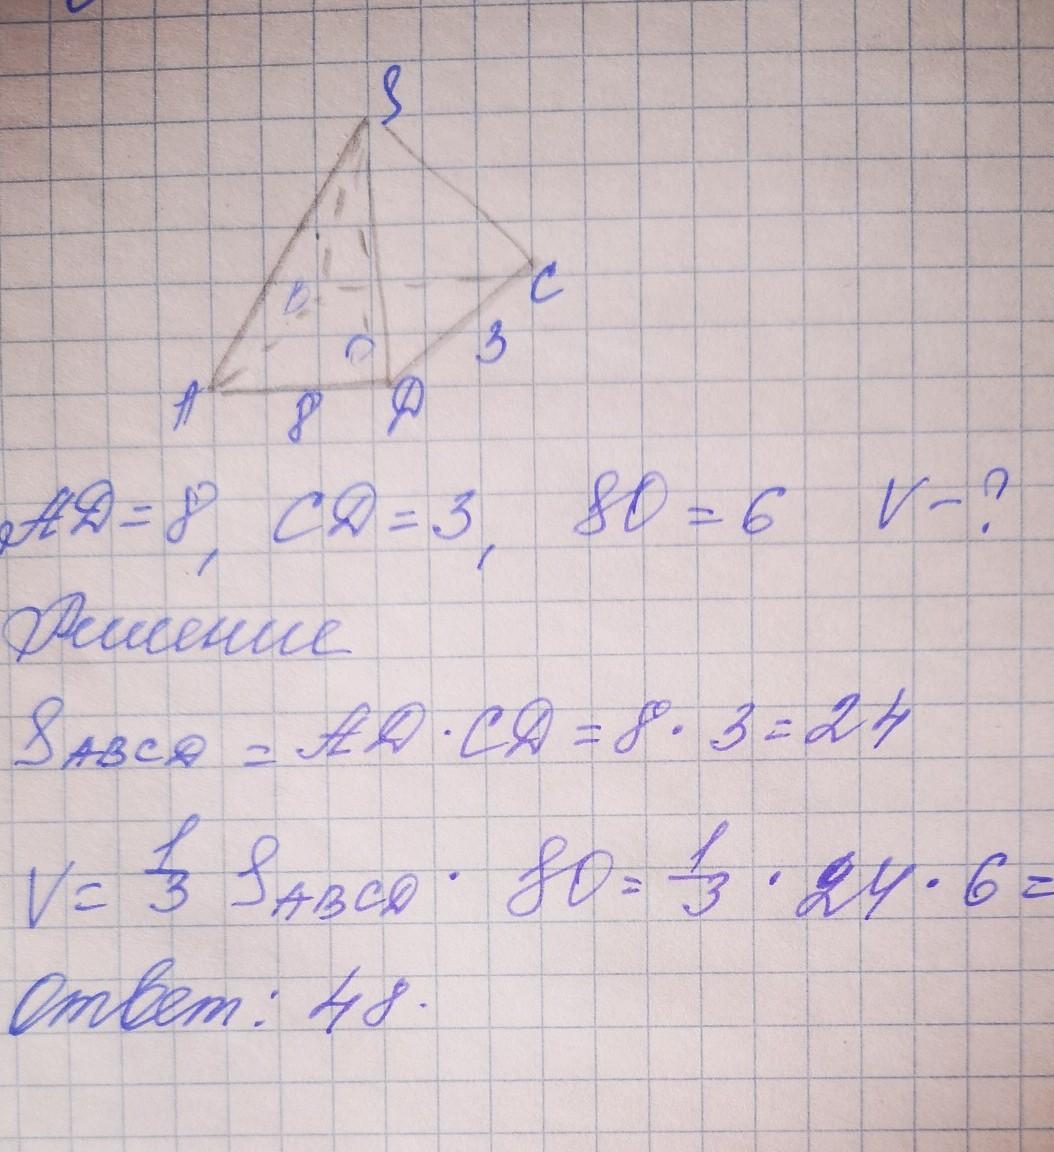 S
B
C
O
3
A
8
D
AD = 8, CD = 3, SO = 6 V - ?
Решение
S ABCD = AD · CD = 8 · 3 = 24
V = 1/3 S ABCD · SO = 1/3 · 24 · 6 =
Ответ: 48.